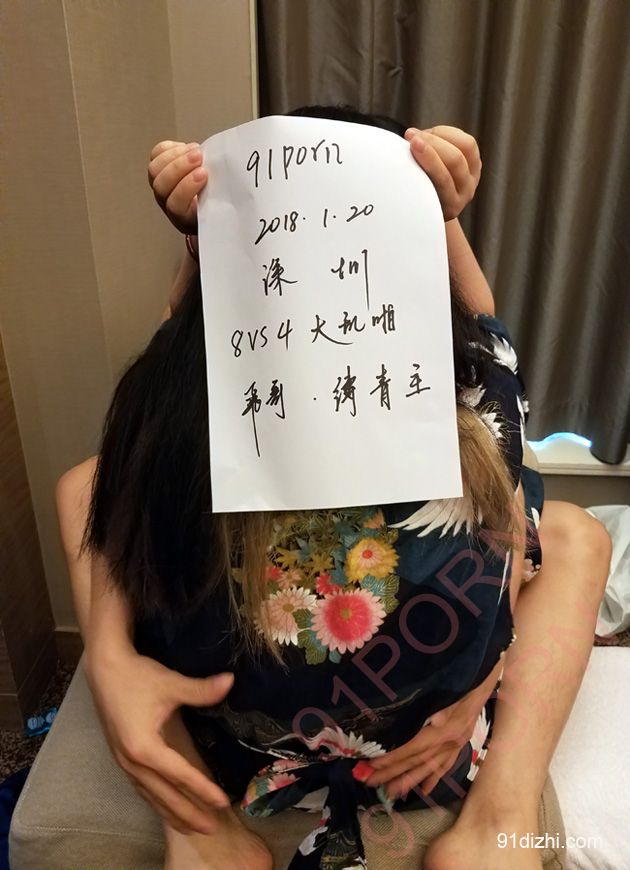 91porn
2018.1.20
深圳
8VS4 大乱啪
哥.绮青主
91PORN
91PORN
91PORN
91dizhi.com